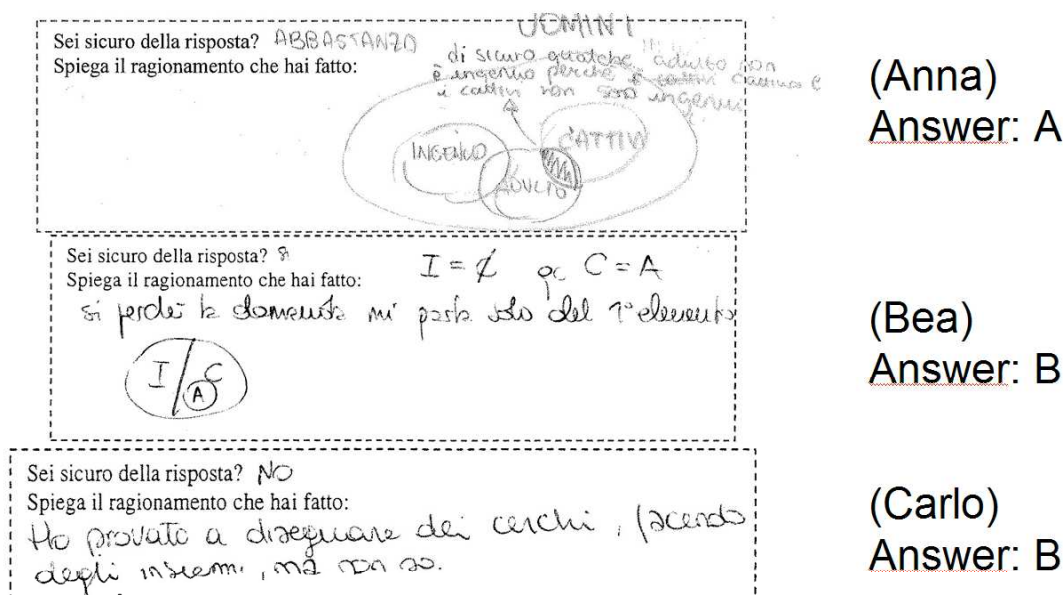 Sei sicuro della risposta? ABBASTANZA
Spiega il ragionamento che hai fatto:
UOMINI
di sicuro qualche adulto non
è ingenuo perché è cattivo e
i cattivi non sono ingenui
INGENUO
CATTIVI
ADULTO
(Anna)
Answer: A
Sei sicuro della risposta? Sì
Spiega il ragionamento che hai fatto:
I = C = A
si perché la domanda mi parla solo del 1° elemento
I / C
A
(Bea)
Answer: B
Sei sicuro della risposta? NO
Spiega il ragionamento che hai fatto:
Ho provato a disegnare dei cerchi, facendo
degli insiemi, ma non so.
(Carlo)
Answer: B